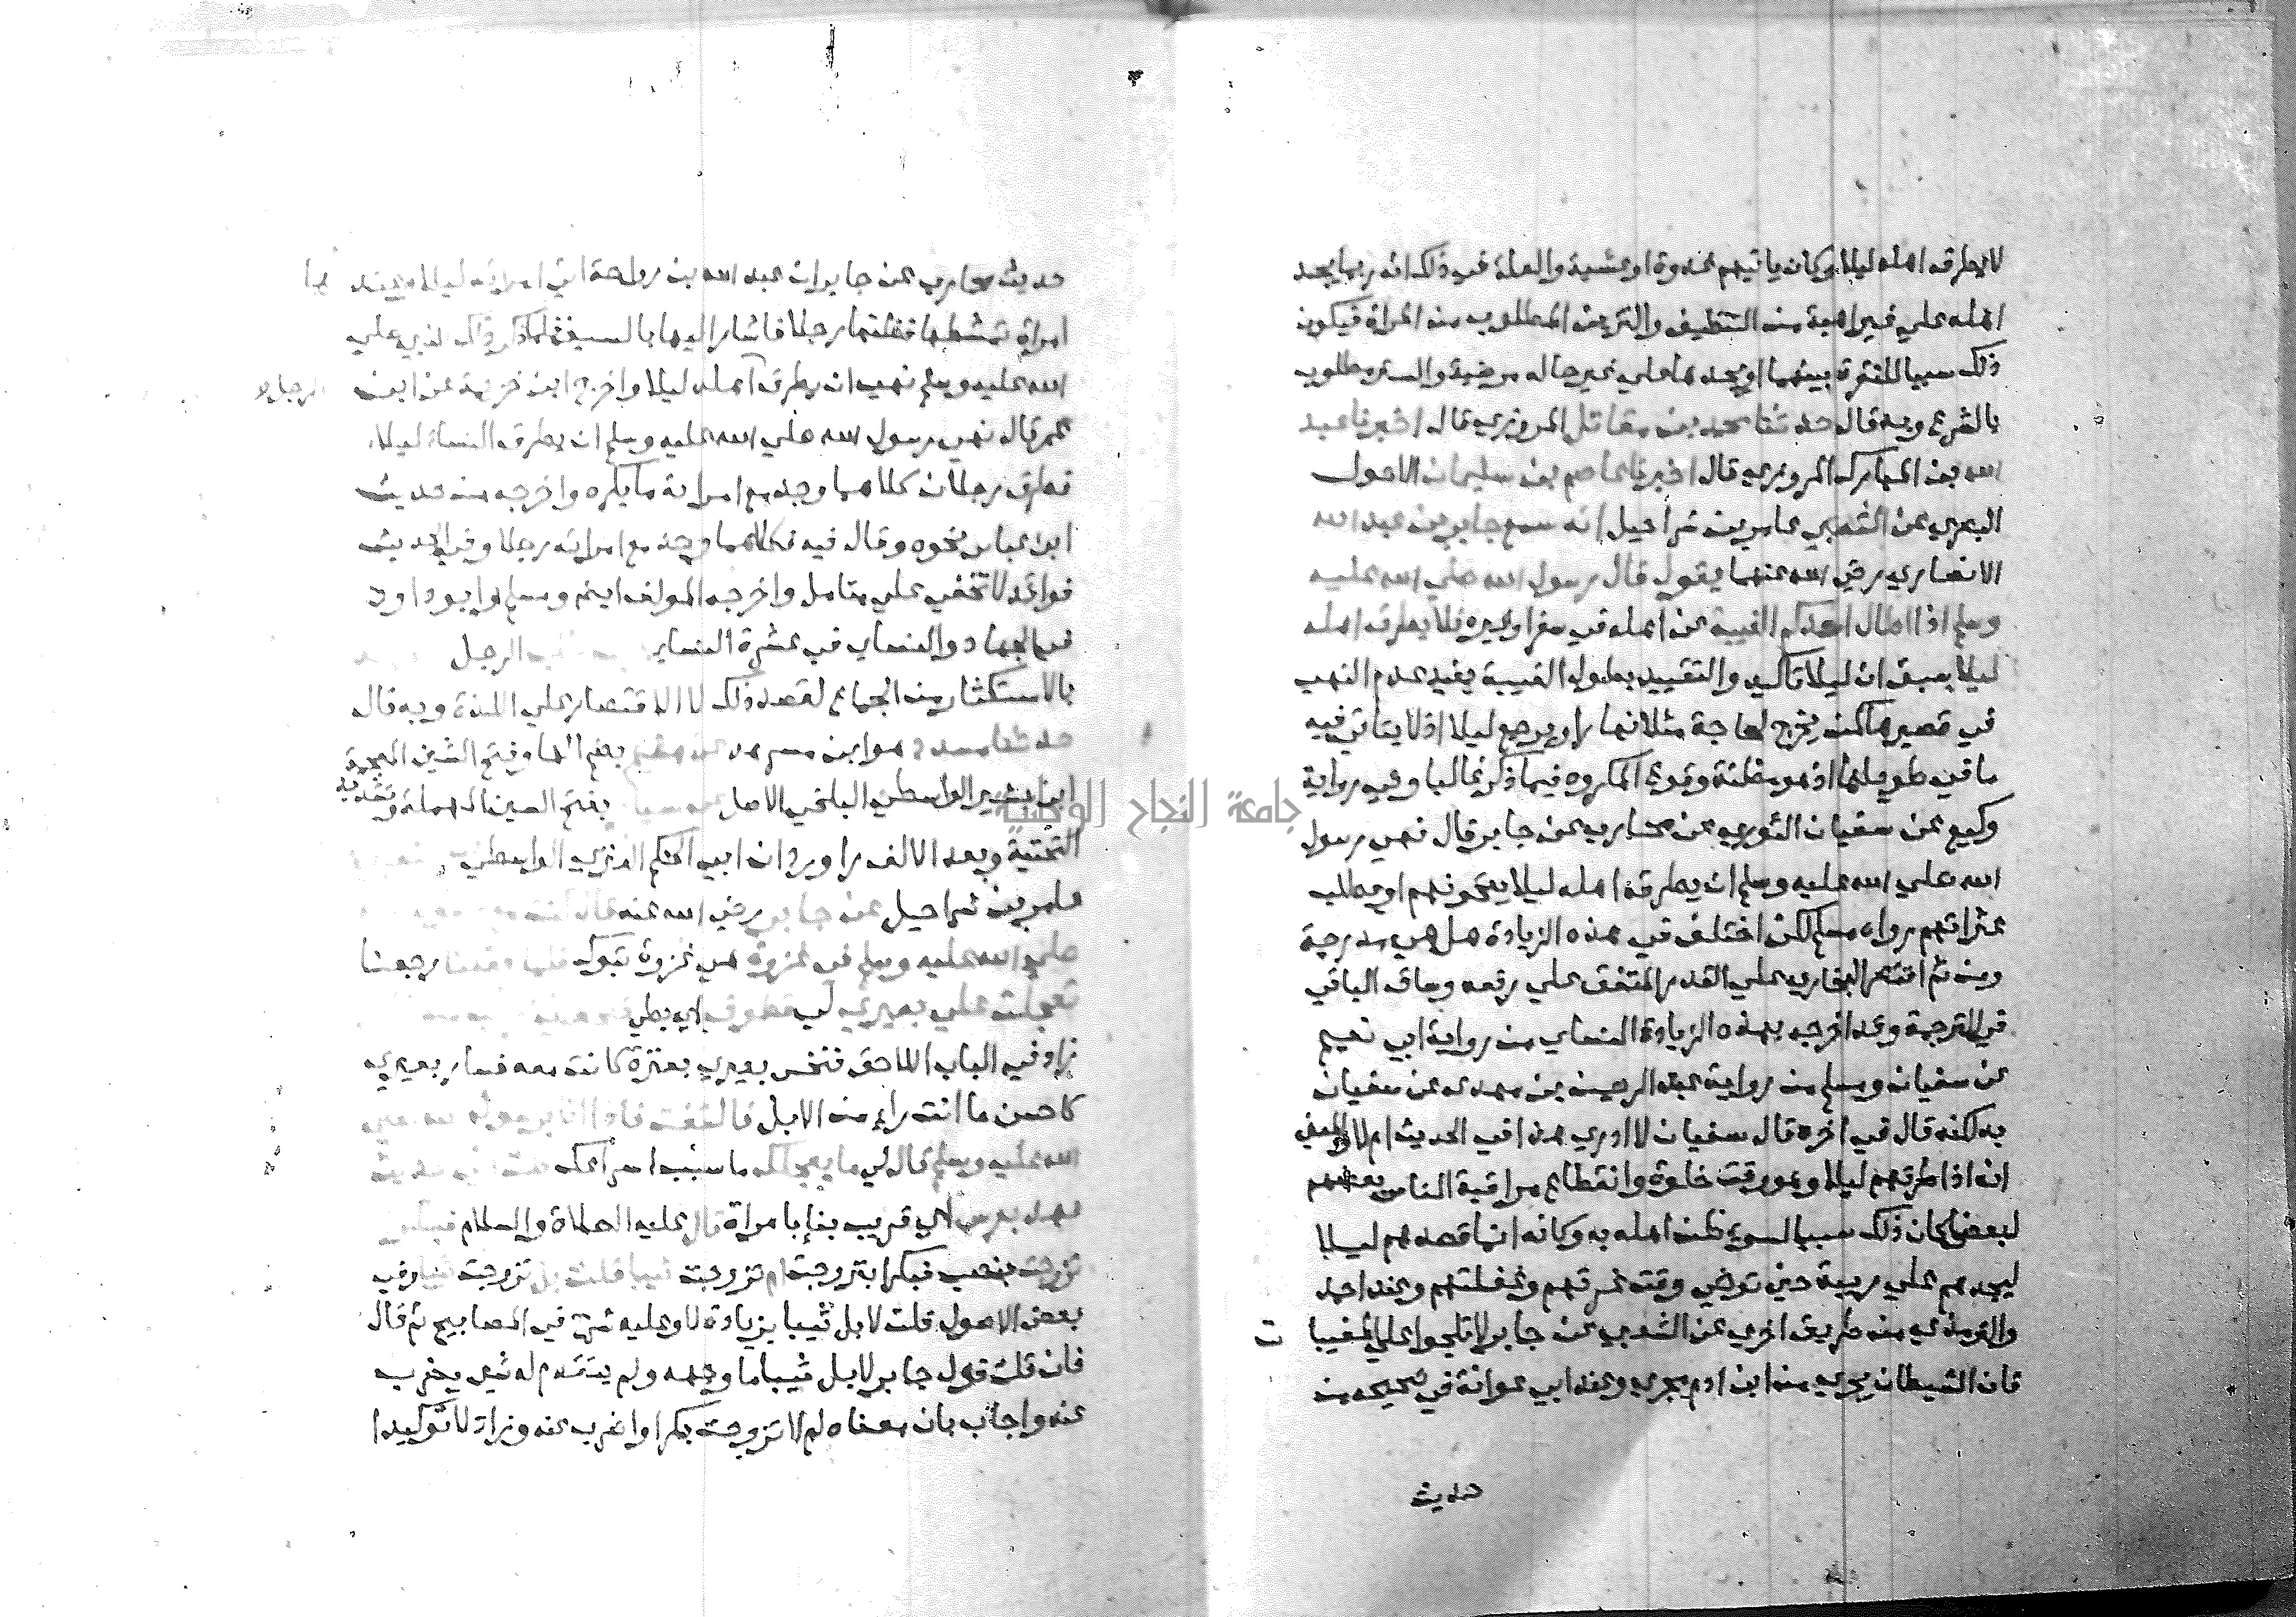 لا يطرق اهله ليلا وكان ياتيهم غدوة او عشية والعلة في ذلك انه ربما يجد
اهله علي غير اهبة من التنظيف والتزين المطلوب من المراة فيكون
ذلك سببا للنفرة بينهما او يجدها علي غير حالة مرضية والستر مطلوب
بالشرع وبه قال حدثنا محمد بن مقاتل المروزي قال اخبرنا عبد
الله بن المبارك المروزي قال اخبرنا عاصم بن سليمان الاحول
البصري عن الشعبي عامر بن شراحيل انه سمع جابر بن عبد الله
الانصاري رضي الله عنهما يقول قال رسول الله صلي الله عليه
وسلم اذا اطال احدكم الغيبة عن اهله في سفر او غيره فلا يطرق اهله
ليلا سبق ان ليلا تاكيد والتقييد بطول الغيبة يفيد عدم النهي
في قصيرها كمن يخرج لحاجة مثلا نهارا ويرجع ليلا اذ لا يتاتي فيه
ما في طويلها اذ هو مظنة وقوع المكروه فيما ذكر غالبا وفي رواية
وكيع عن سفيان الثوري عن محارب عن جابر قال نهي رسول
الله صلي الله عليه وسلم ان يطرق اهله ليلا يتخونهم او يطلب
عثراتهم رواه مسلم لكن اختلف في هذه الزيادة هل هي مدرجة
ومن ثم اقتصر البخاري علي القدر المتفق علي رفعه وساق الباقي
في الترجمة وقد اخرجه بهذه الزيادة النساي من رواية ابي نعيم
عن سفيان ومسلم من رواية عبد الرحمن بن مهدي عن سفيان
به لكنه قال في اخره قال سفيان لا ادري هذا في الحديث ام لا والمعني
ان اذا طرقهم ليلا وهو وقت خلوة وانقطاع مراقبة الناس بعضهم
لبعض كان ذلك سببا لسوء ظن اهله به وكانه انما قصدهم ليلا
ليجدهم علي ريبة حين توخي وقت غرتهم وغفلتهم وعند احمد
والترمذي من طريق اخري عن الشعبي عن جابر لا تلجوا علي المغيبات
فان الشيطان يجري من ابن ادم مجري وعند ابي عوانة في صحيحه من
حديث
حديث محارب عن جابر ان عبد الله بن رواحة اتي امراته ليلا وعندها
امراة تمشطها فظنها رجلا فاشار اليها بالسيف فلما ذكر ذلك للنبي صلي
الله عليه وسلم نهي ان يطرق الرجل اهله ليلا واخرج ابن خزيمة عن ابن
عمر قال نهي رسول الله صلي الله عليه وسلم ان يطرق النساء ليلا
فطرق رجلان كلاهما وجد مع امراته ما يكره واخرجه من حديث
ابن عباس نحوه وقال فيه فكلاهما وجد مع امراته رجلا وفي الحديث
فوائد لا تخفي علي متامل واخرجه المولف ايضا ومسلم وابو داود
في الجهاد والنساي في عشرة النساء الرجل
بالاستكثار من الجماع لقصد ذلك لا الاقتصار علي اللذة وبه قال
حدثنا مسدد هو ابن مسرهد عن هشيم بضم الها وفتح الشين المعجمة
ابن بشير الواسطي البلخي الاصل عن سيار بفتح السين المهملة وتشديد
التحتية وبعد الالف را وردان ابي الحكم العنزي الواسطي
عامر بن شراحيل عن جابر رضي الله عنه قال كنت مع
صلي الله عليه وسلم في غزوة هي غزوة تبوك فلما قفلنا رجعنا
تعجلت علي بعير لي قطوف اي بطي
زاد في الباب اللاحق فنخس بعيري بعنزة كانت معه فسار بعيري
كاحسن ما انت راء من الابل فالتفت فاذا انا برسول الله صلي
الله عليه وسلم قال لي ما يعجلك ما سبب اسراعك قلت اني حديث
عهد بعرس اي قريب بناء بامراة قال عليه الصلاة والسلام
تزوجت فبكرا تزوجت ام تزوجت ثيبا قلت بل تزوجت ثيبا وفي
بعض الاصول قلت لا بل ثيبا بزيادة لا وعليه شرح في المصابيح ثم قال
فان قلت قول جابر لا بل ثيبا ما وجهه ولم يتقدم له شي يضرب
عنه واجاب بان معناه لم لا تزوجت بكرا واضرب عنه وزاد لا توكيدا